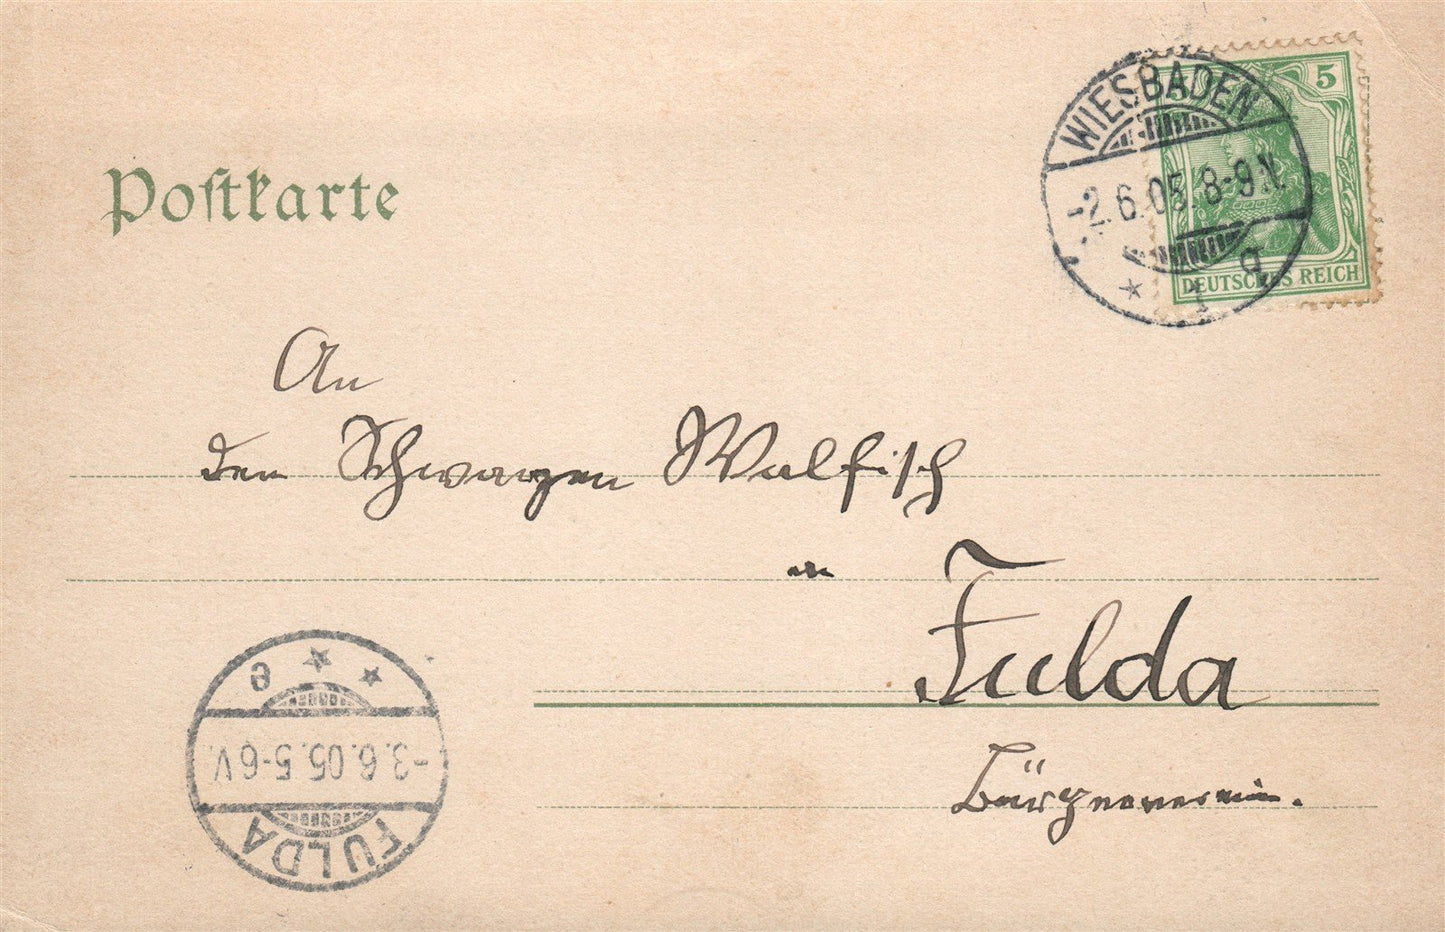 Postkarte
WIESBADEN
-2.6.05. 8-9 N.
* 1 g
5
DEUTSCHES REICH
An
den Schwarzen Walfisch
in
Fulda
Bürgerverein.
e * *
-3.6.05. 5-6 V.
FULDA